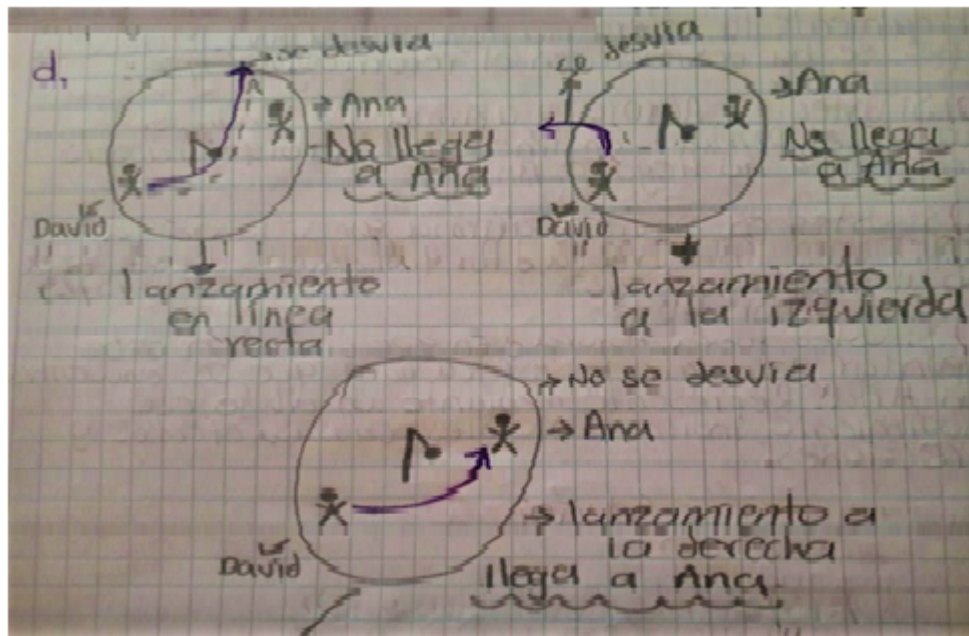 d.
se desvia
→ Ana
No llega
a Ana
David
lanzamiento
en línea
recta
desvia
→ Ana
No llega
a Ana
David
lanzamiento
a la izquierda
→ No se desvia
→ Ana
David
→ lanzamiento a
la derecha
llega a Ana.